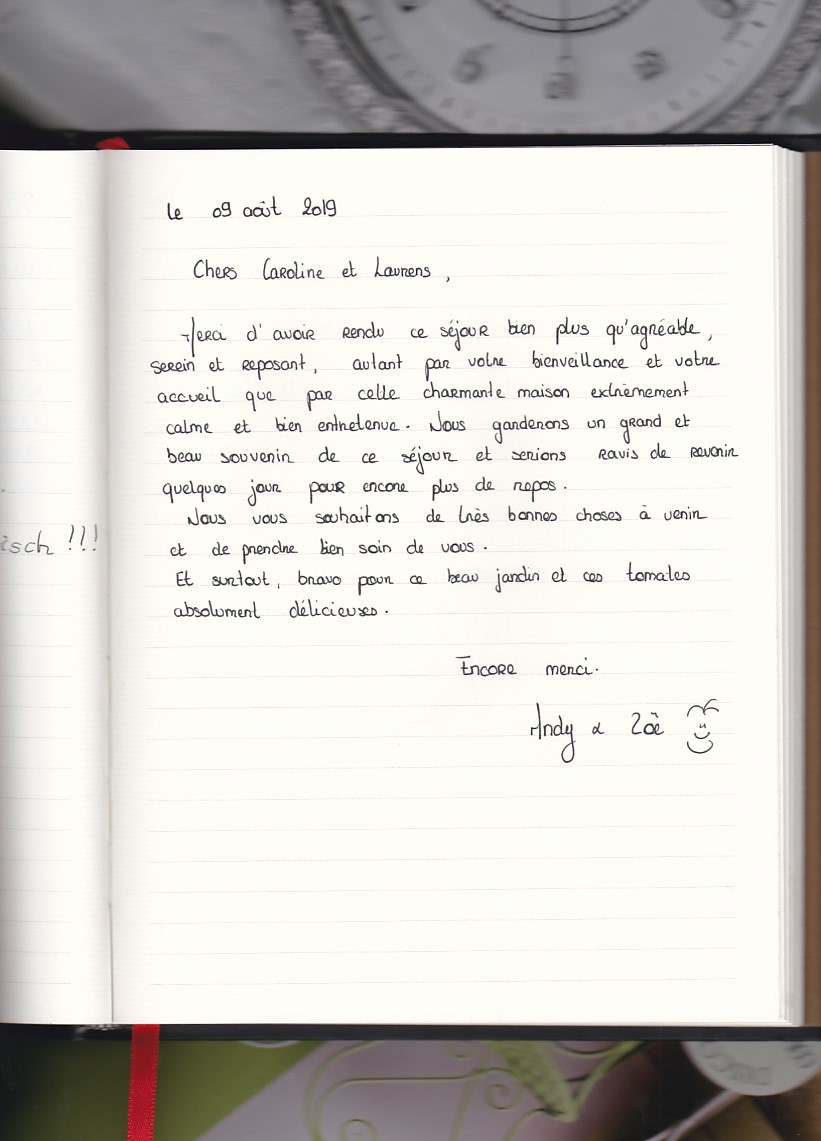 le 09 août 2019
Chers Caroline et Laurens,
Merci d'avoir rendu ce séjour bien plus qu'agréable,
serein et reposant, autant par votre bienveillance et votre
accueil que par cette charmante maison extrêmement
calme et bien entretenue. Nous garderons un grand et
beau souvenir de ce séjour et serions ravis de revenir
quelques jour pour encore plus de repos.
Nous vous souhaitons de très bonnes choses à venir
et de prendre bien soin de vous.
Et surtout, bravo pour ce beau jardin et ces tomates
absolument délicieuses.
Encore merci.
Andy & Zoë
isch !!!